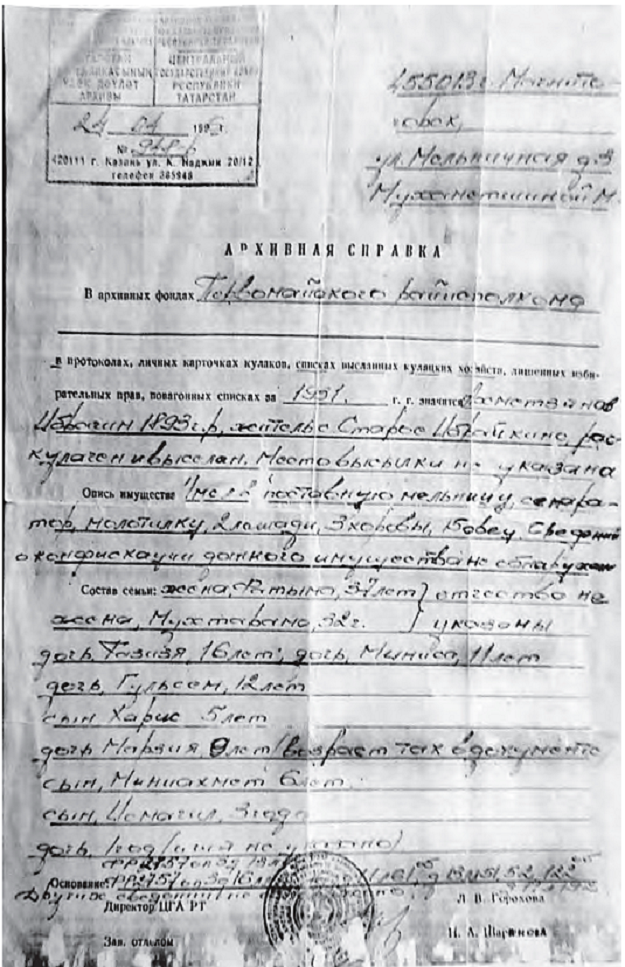 ЦЕНТРАЛЬНЫЙ
РЕСПУБЛИКИ
ДӘҮЛӘТ
АРХИВЫ ТАТАРСТАН
24 04 199 г.
№
420111 г. Казань ул. К. Наджми 20/12
телефон
455013 г. Магнито-
горск,
ул. Мельничная д.3
Мухаметшиной М.
АРХИВНАЯ СПРАВКА
В архивных фондах Первомайского райисполкома
в протоколах, личных карточках кулаков, списках высланных кулацких хозяйств, лишенных изби-
рательных прав, повагонных списках за 1931. г. г. значится Ахметзянов
Ибрагим 1893 г.р, житель с Старое Ибрайкино, рас-
кулачен и выселан. Место высылки не указана
Опись имущества "имел" поставную мельницу, сепара-
тор, молотилку, 2 лошади, 3 коровы, 15 овец. Сведений
о конфискации данного имущества не обнаружен
Состав семьи: жена, Фатыма, 37 лет } отчество не
жена, Мухтарама, 32 г. } указаны
дочь, 16 лет; дочь, Миниса, 11 лет
дочь, Гульсем, 12 лет
сын Харис 5 лет
дочь Марзия, 9 лет (возраст так в документе
сын, Миниахмет 6 лет.
сын, Исмагил, 3 года
дочь, 1 год (имя не указано)
Основание:
Другие сведений
Директор ЦГА РТ Л. В. Горохова
Зав. отделом Н. А. Шарангова